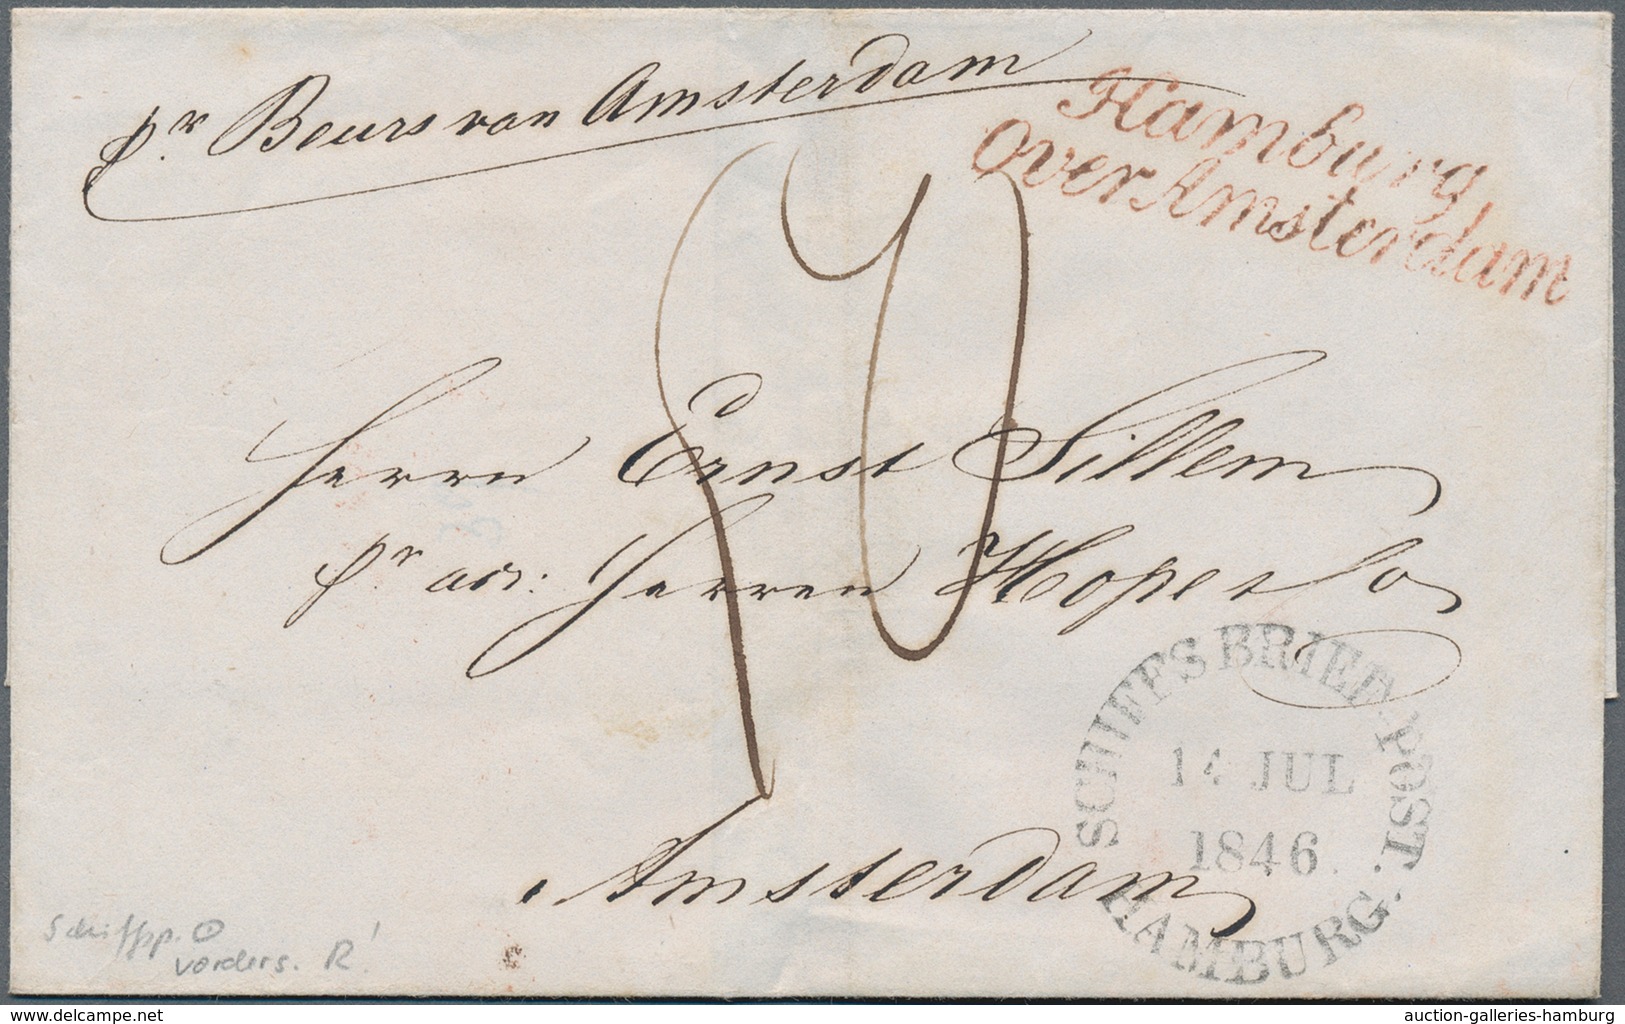 pr. Beurs van Amsterdam
Hamburg
over Amsterdam
Herrn Ernst Sillem
pr adr: Herren Hope & Co
SCHIFFS BRIEF-POST.
14 JUL
1846.
HAMBURG.
Amsterdam
Schiffsp.
vorders. R!
www.delcampe.net
auction-galleries-hamburg